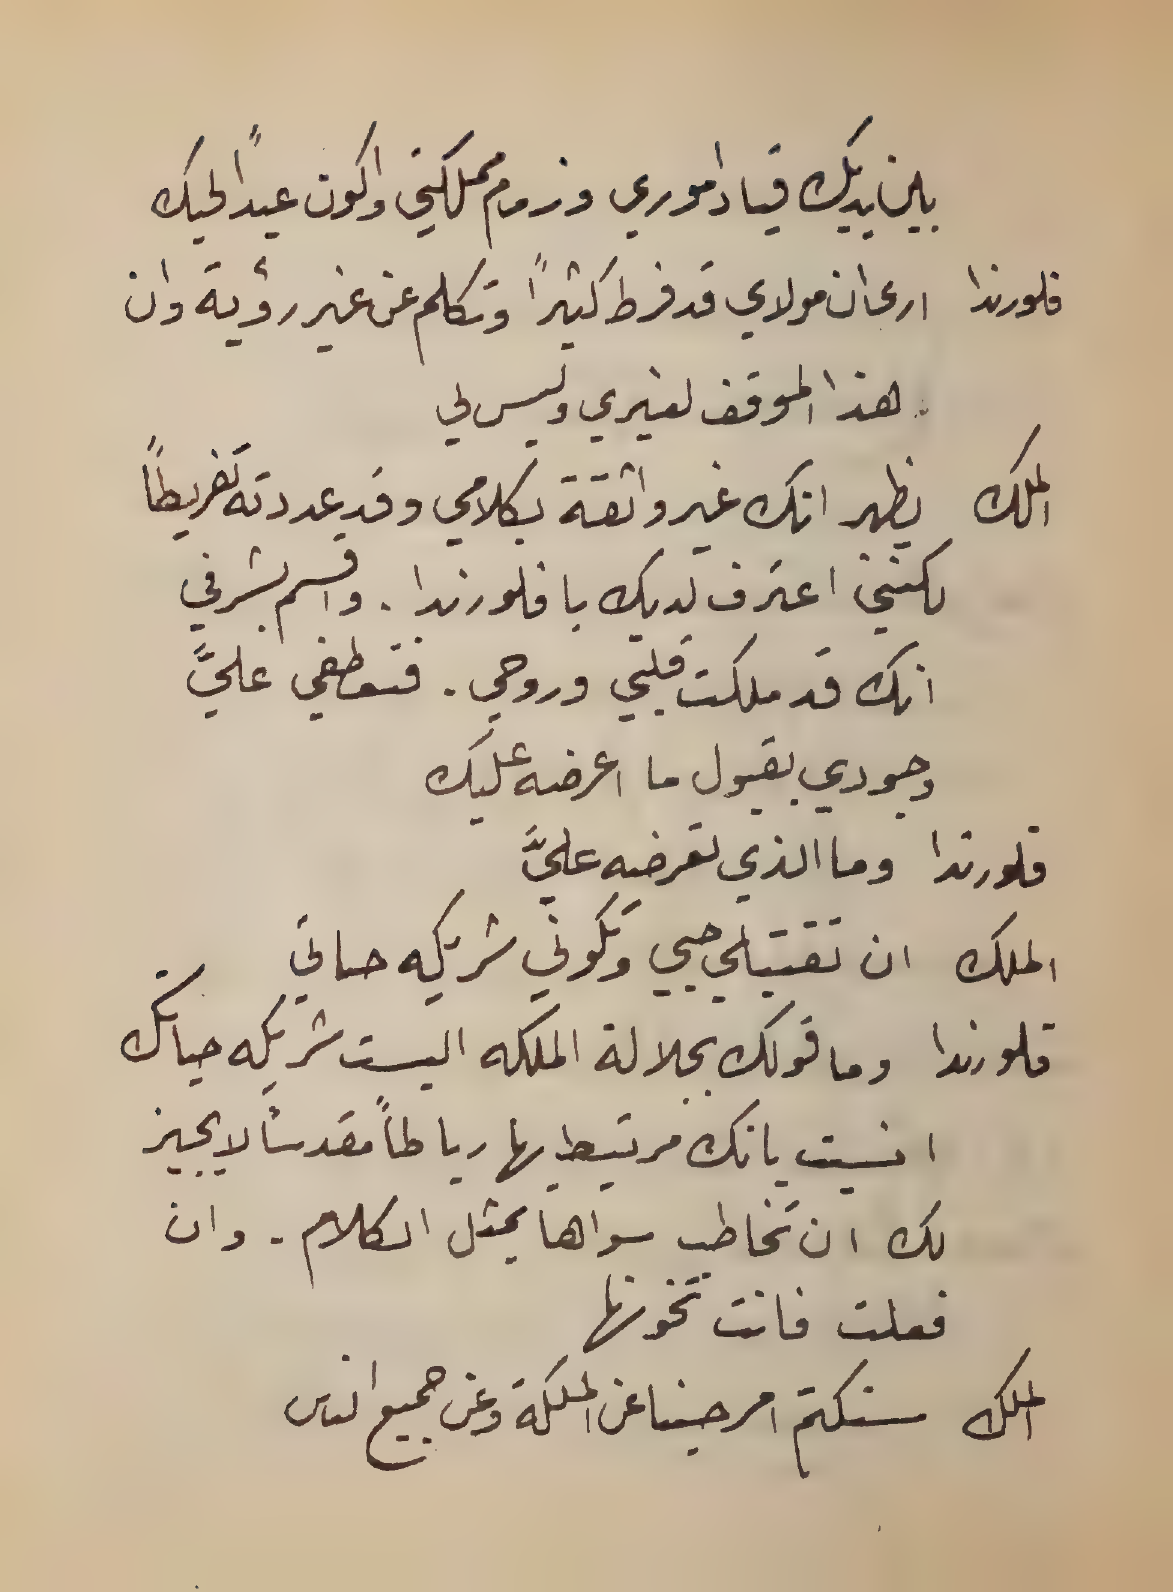 بين يديك قياد اموري وزمام مملكتي واكون عبداً لحبك
فلورندا ارى ان مولاي قد فرط كثيراً وتكلم عن غير رؤية وان
هذا الموقف لغيري وليس لي
الملك يظهر انك غير واثقة بكلامي وقد عددته تفريطاً
لكنني اعترف لديك يا فلورندا . واقسم بشرفي
انك قد ملكت قلبي وروحي . فتعطفي عليَّ
وجودي بقبول ما اعرضه عليك
فلورندا وما الذي تعرضه عليَّ
الملك ان تقتبلي حبي وتكوني شريكه حياتي
فلورندا وما قولك بجلالة الملكه اليست شريكه حياتك
انسيت بانك مرتبط بها رباطاً مقدساً لا يجيز
لك ان تخاطب سواها بمثل الكلام . وان
فعلت فانت تخونها
الملك سنكتم امر حبنا عن الملكة وعن جميع الناس